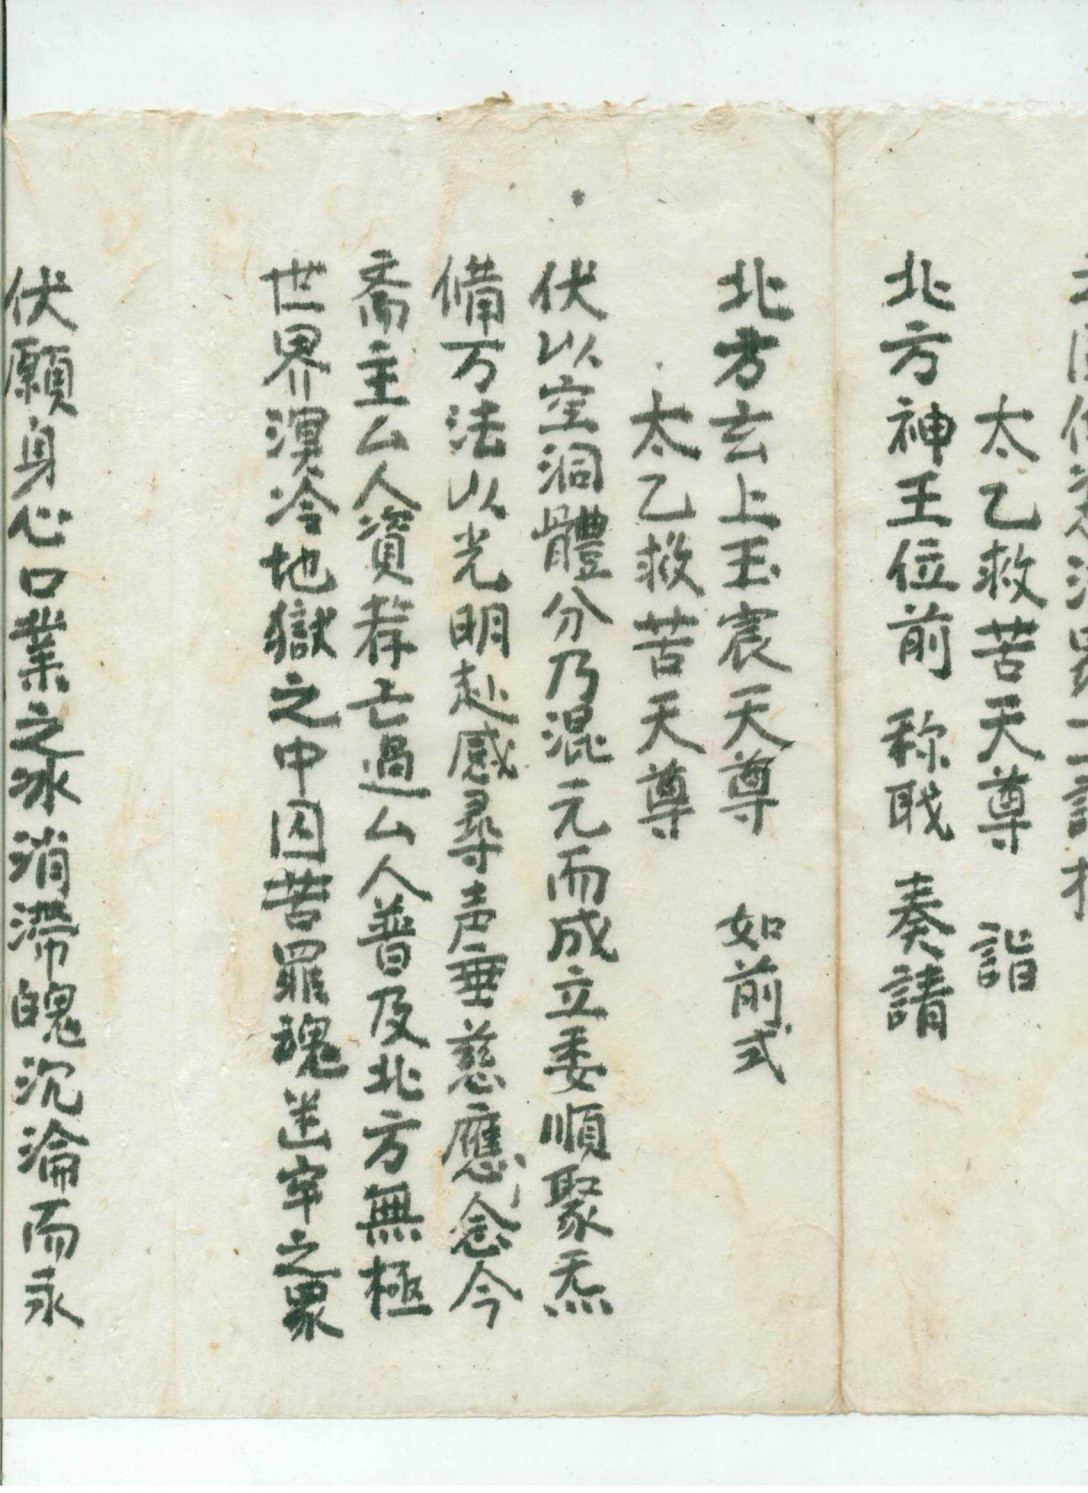 太乙救苦天尊 詣
北方神王位前 称職 奏請
北方玄上玉宸天尊 如前式
太乙救苦天尊
伏以空洞體分乃混元而成立委順聚炁
備万法以光明赴感尋声垂慈應念今
斋主厶人資荐亡過厶人普及北方無極
世界溟冷地獄之中囚苦罪魂迷宰之眾
伏願身心口業之冰消滯魄沉淪而永